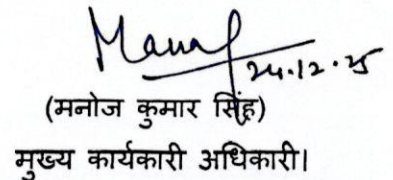 Manoj
24.12.25
(मनोज कुमार सिंह)
मुख्य कार्यकारी अधिकारी।